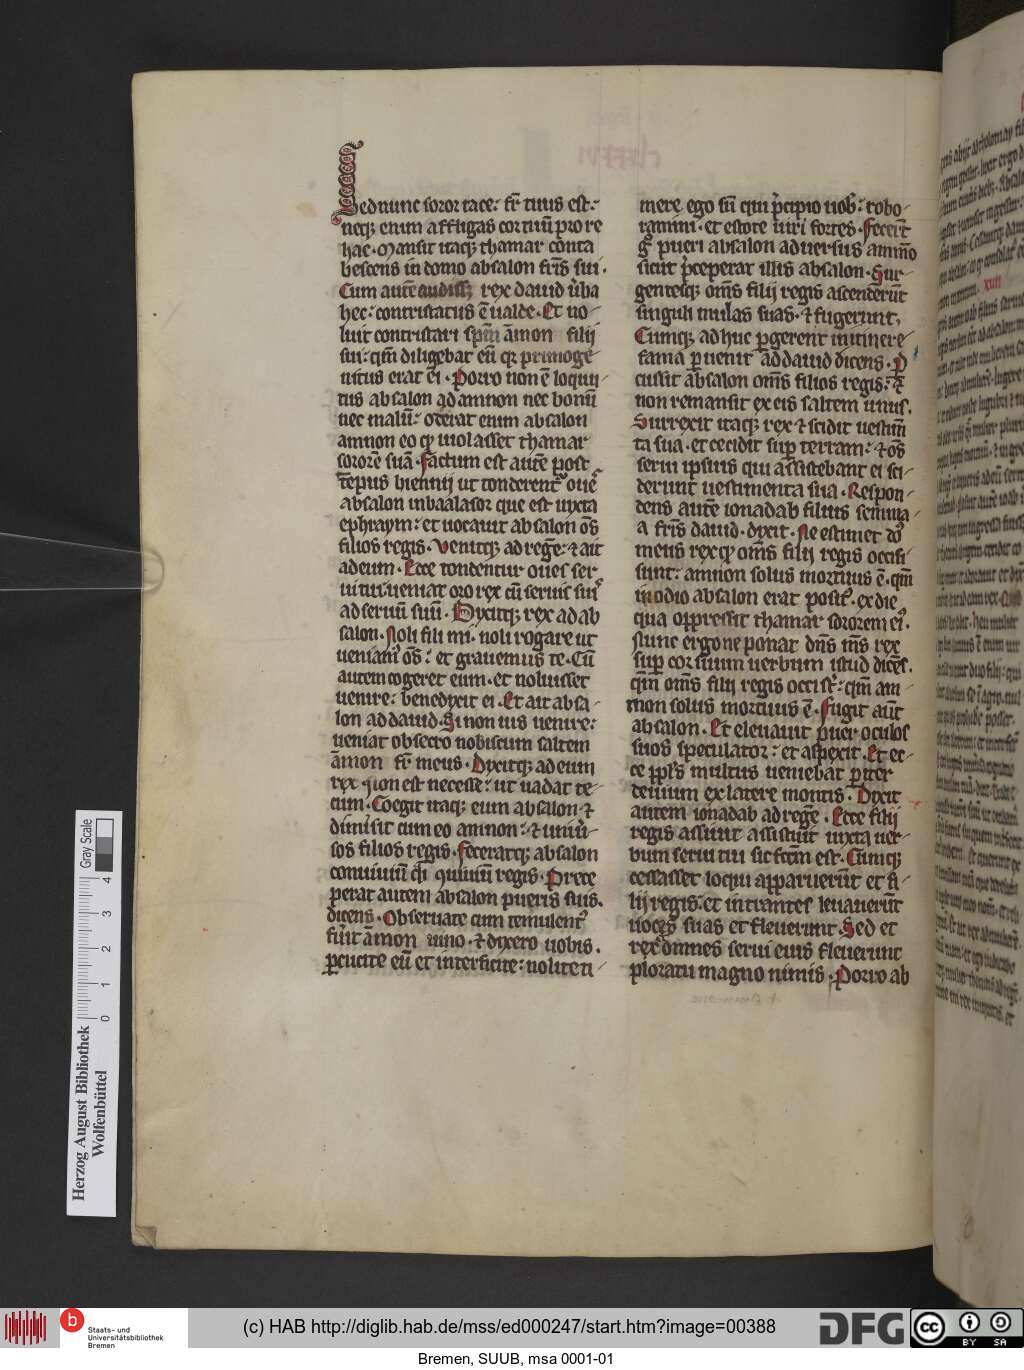 Sed nunc soror tace: fr̄ tuus est:
neq; enim affligas cor tuū pro re
hac. Mansit itaq; thamar conta
bescens in domo absalon fr̄is sui.
Cum autē audiss; rex dauid u̓ba
hec: contristatus ē ualde. Et no-
luit contristari sp̄m āmon filij
sui: qm̄ diligebat eū qr primoge-
nitus erat ei. Porro non ē loqui-
tus absalon ad amnon nec bonū
nec malū: oderat eum absalon
amnon eo qp uiolasset thamar
sororē suā. Factum est autē post
tēpus biennij ut tonderent' oues
absalon in baalasor que est iuxta
ephraym: et uocauit absalon oēs
filios regis. Venitq; ad regē: ⁊ ait
ad eum. Ecce tondentur oues ser-
ui tui: ueniat oro rex cū seruis suis
ad seruū suū. Dixitq; rex ad ab
salon. Noli fili mi. noli rogare ut
ueniam' oēs: et grauemus te. Cū
autem cogeret eum. et noluisset
uenire: benedixit ei. Et ait absa-
lon ad dauid. Si non uis uenire:
ueniat obsecro nobiscum saltem
āmon fr̄ meus. Dixitq; ad eum
rex. Non est necesse: ut uadat te-
cum. Coegit itaq; eum absalon ⁊
dimisit cum eo amnon: ⁊ uniu̓-
sos filios regis. Feceratq; absalon
conuiuiū q̄i 9uiuiū regis. Prece
perat autem absalon pueris suis.
dicens. Obseruate cum temulent'
fu̓it āmon uino. ⁊ dixero uobis.
ꝑcutite eū et interficite: nolite ti-
mere ego sū qui p̓cipio uob: robo-
ramini. et estote uiri fortes. Fecerūt
g̊ pueri absalon aduersus amnō
sicut p̓ceperat illis absalon. Sur-
gentesq; om̄s filij regis ascenderūt
singuli mulas suas. ⁊ fugerunt.
Cumq; adhuc ꝑgerent in itinere-
fama ꝑuenit ad dauid dicens. P̄
cussit absalon om̄s filios regis: ⁊
non remansit ex eis saltem unus.
Surrexit itaq; rex ⁊ scidit uestim̄
ta sua. et cecidit sup̄ terram: ⁊ oēs
serui ipsius qui assistebant ei sci-
derunt uestimenta sua. Respon-
dens autē ionadab filius semma-
a fr̄is dauid. dixit. Ne estimet dn̄s
meus rex qp om̄s filij regis occisi
sunt: amnon solus mortuus ē. qm̄
in odio absalon erat posit'. ex die
qua oppressit thamar sororem ei'.
Nunc ergo ne ponat dn̄s m̄s rex
sup̄ cor suum uerbum istud dicēs.
qm̄ om̄s filij regis occisi st̄: qm̄ am-
mon solus mortuus ē. Fugit aūt
absalon. Et eleuauit puer oculos
suos speculator: et aspexit. Et ec-
ce ppl's multus ueniebat ꝑ iter
deuium ex latere montis. Dixit
autem ionadab ad regē. Ecce filij
regis assunt assistūt iuxta uer-
bum serui tui sic fcm̄ est. Cumq;
cessasset loqui apparuerūt et fi-
lij regis. et intrantes leuauerūt
uoces suas et fleuerunt. Sed et
rex ⁊ omnes serui eius fleuerunt
ploratu magno nimis. Porro ab
Herzog August Bibliothek
Wolfenbüttel
Gray Scale
0 1 2 3 4
b Staats- und
Universitätsbibliothek
Bremen
(c) HAB http://diglib.hab.de/mss/ed000247/start.htm?image=00388
DFG
cc BY SA
Bremen, SUUB, msa 0001-01